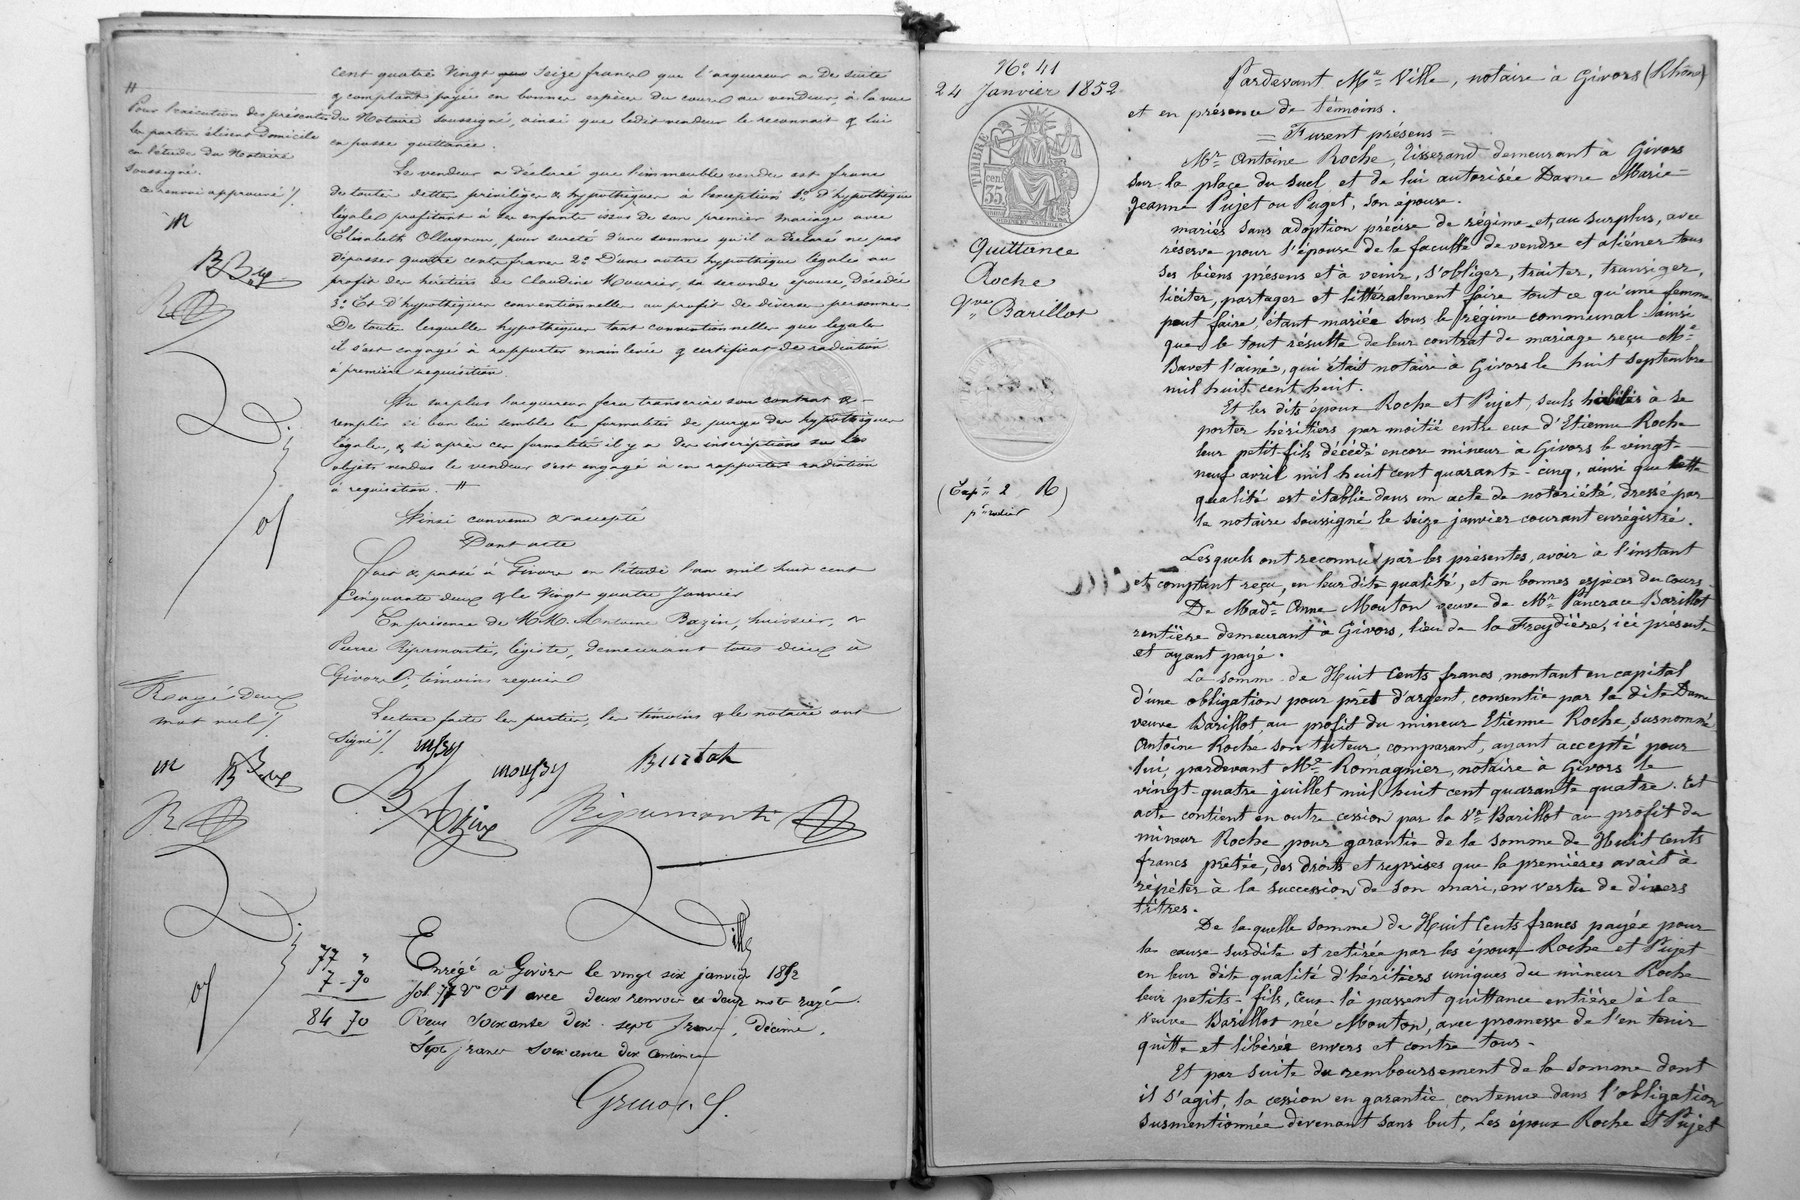 cent quatre vingt seize francs que l'acquereur a de suite
& comptant payée en bonnes espèces du cours au vendeur, à la vue
du Notaire soussigné, ainsi que ledit vendeur le reconnait & lui
en passe quittance.
Le vendeur a déclaré que l'immeuble vendu est franc
de toute dettes privilèges & hypothèques à l'exception 1o d'hypothèque
légale profitant à ses enfants issus de son premier mariage avec
Elisabeth Ollagnon, pour sureté d'une somme qu'il a déclaré ne pas
dépasser quatre cents francs 2o D'une autre hypothèque légale au
profit des héritiers de Claudine Mourier, sa seconde épouse, décédée
3o Et d'hypothèques conventionnelles au profit de diverses personnes
De toutes lesquelles hypothèques tant conventionnelles que légales
il s'est engagé à rapporter main levée & certificat de radiation
à première requisition.
Au surplus l'acquereur fera transcrire son contrat &
remplir si bon lui semble les formalités de purge des hypothèques
légales, & si après ces formalités il y a des inscriptions sur les
objets vendus le vendeur s'est engagé à en rapporter radiation
à requisition. #
Ainsi convenu & accepté
Dont acte
Fait & passé à Givors en l'étude l'an mil huit cent
cinquante deux & le vingt quatre Janvier
En présence de M.M. Antoine Bazin, huissier, &
Pierre Ripamonti, légiste, demeurant tous deux à
Givors, témoins requis
Lecture faite les parties, les témoins & le notaire ont
signé /.
#
Pour l'exécution des présentes
les parties élisent domicile
en l'étude du Notaire
soussigné.
Ce renvoi approuvé /.
m
Rayé deux
mot nul /.
m
mousy
Ripamonti
Ville
77 "
7 - 70
84 70
Enrégé à Givors le vingt six janvier 1852
fol. 77 Vo Co 1 avec deux renvois et deux mots rayés.
Reçu soixante dix-sept francs, Décime,
Sept francs soixante dix centimes
No 41
24 Janvier 1852
TIMBRE
cen
35
Quittance
Roche
Barillot
Pardevant Me Ville, notaire à Givors (Rhône)
et en présence de témoins.
= Furent présens =
Mr Antoine Roche, tisserand demeurant à Givors
sur la place du Suel et de lui autorisée Dame Marie-
Jeanne Pujet ou Puget, son épouse.
mariés sans adoption précise de régime et, au surplus, avec
réserve pour l'épouse de la faculté de vendre et aliéner tous
ses biens présens et à venir, s'obliger, traiter, transiger,
liciter, partager et littéralement faire tout ce qu'une femme
peut faire, étant mariée sous le régime communal ainsi
que le tout résulte de leur contrat de mariage reçu Me
Bavet l'ainé, qui était notaire à Givors le huit septembre
mil huit cent huit.
Et les dits époux Roche et Pujet, seuls habiles à se
porter héritiers par moitié entre eux d'Etienne Roche
leur petit-fils décédé encore mineur à Givors le vingt-
neuf avril mil huit cent quarante-cinq, ainsi que cette
qualité est établie dans un acte de notoriété, dressé par
le notaire soussigné le seize janvier courant enrégistré.
Lesquels ont reconnu par les présentes, avoir à l'instant
et comptant reçu, en leur dite qualité, et en bonnes espèces du cours
De Made Anne Mouton veuve de Mr Pancrace Barillot
rentière demeurant à Givors, lieu de la Freydière, ici présente
et ayant payé.
La somme de Huit Cents francs, montant en capital
d'une obligation pour prêt d'argent, consentie par la dite Dame
veuve Barillot, au profit du mineur Etienne Roche, susnommé
Antoine Roche son tuteur, comparant, ayant accepté pour
lui, pardevant Me Romagnier, notaire à Givors le
vingt-quatre juillet mil huit cent quarante quatre. Cet
acte contient en outre cession par la Ve Barillot au profit du
mineur Roche pour garantie de la somme de Huit Cents
francs prêtée, des droits et reprises que la première avait à
répéter à la succession de son mari, en vertu de divers
titres.
De laquelle somme de Huit Cents francs payée pour
la cause susdite et retirée par les époux Roche et Pujet
en leur dite qualité d'héritiers uniques du mineur Roche
leur petit-fils, ceux-là passent quittance entière à la
Veuve Barillot née Mouton, avec promesse de l'en tenir
quitte et libérée envers et contre tous-
Et par suite du remboursement de la somme dont
il s'agit, la cession en garantie contenue dans l'obligation
susmentionnée devenant sans but, les époux Roche et Pujet